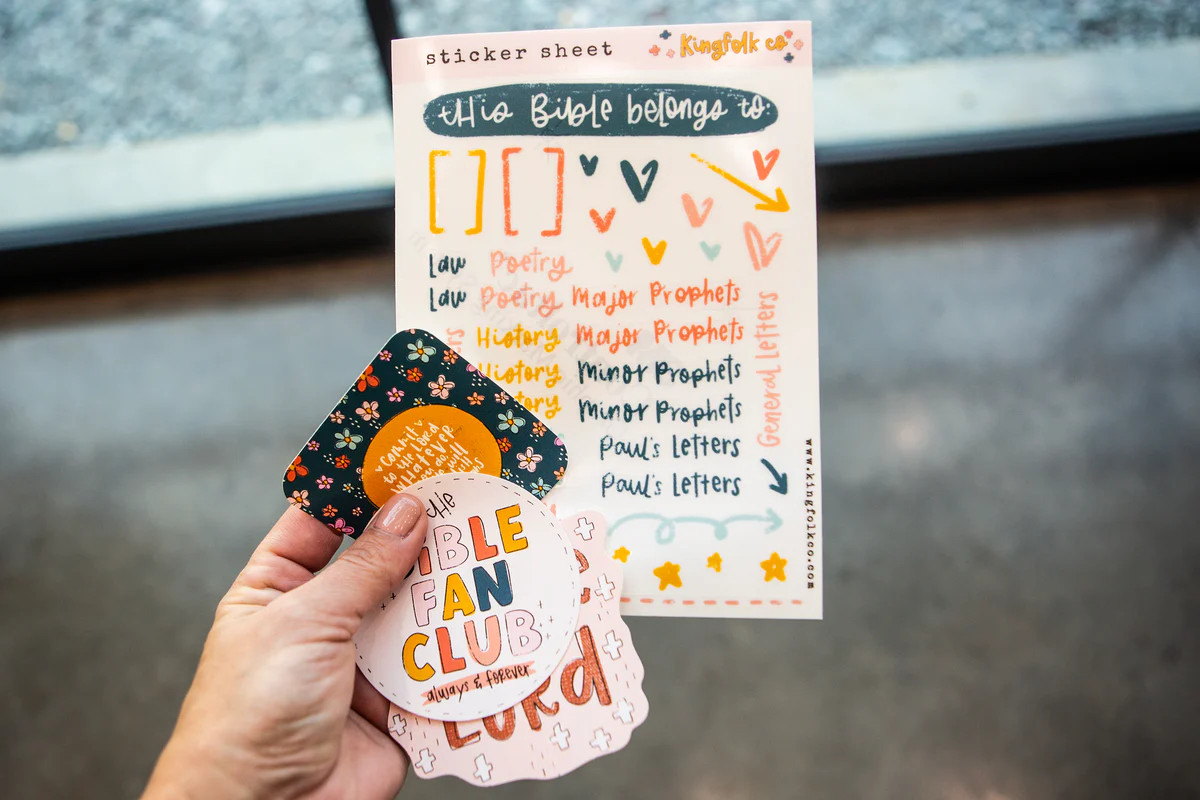 sticker sheet
Kingfolk co
this Bible belongs to:
Law Poetry
Law Poetry Major Prophets
History Major Prophets
History Minor Prophets
Minor Prophets
Paul's Letters
Paul's Letters
General Letters
www.kingfolkco.com
commit
to the Lord
whatever
will
the
FAN
CLUB
always & forever
Lord